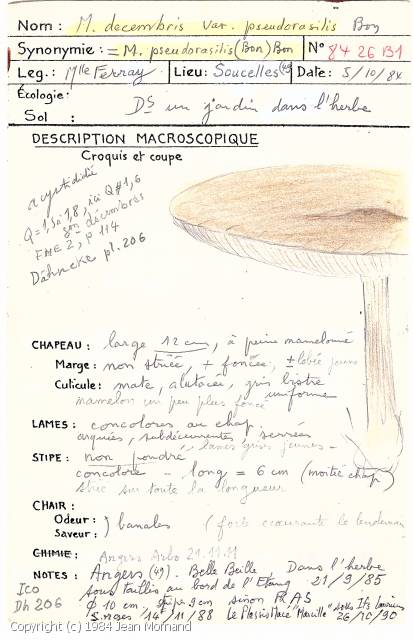 Nom : M. decembris var. pseudorasilis Bon
Synonymie : = M. pseudorasilis (Bon) Bon N° 84 26 B1
Leg. : Mlle Ferray Lieu : Soucelles (49) Date : 5/10/84
Écologie :
Sol : Ds un jardin dans l'herbe
DESCRIPTION MACROSCOPIQUE
Croquis et coupe
acystidié
Q = 1,5 à 1,8, ici Q # 1,6
décembres
FME 2, p 114
Dähncke pl. 206
CHAPEAU : large 12 cm, à peine mamelonné
Marge : non striée, + foncée, ± lobée jeune
Cuticule : mate, alutacée, gris bistre
mamelon un peu plus foncé uniforme
LAMES : concolores au chap.
arquées, subdécurrentes, serrées
STIPE : non poudré
concolore - long = 6 cm (moitié chap)
strié sur toute la longueur
CHAIR :
Odeur :
Saveur : ) banales (forte le lendemain
CHIMIE : Angers Arbo 21.11.11
NOTES : Angers (49). Belle Beille, Dans l'herbe
Ico sous taillis au bord de l'Etang 21/9/85
Dh 206 Ø 10 cm, stipe 9 cm sinon
14/11/88 Le Plessis Macé "Marcille" 26/10/90
Copyright (c) 1984 Jean Mornand